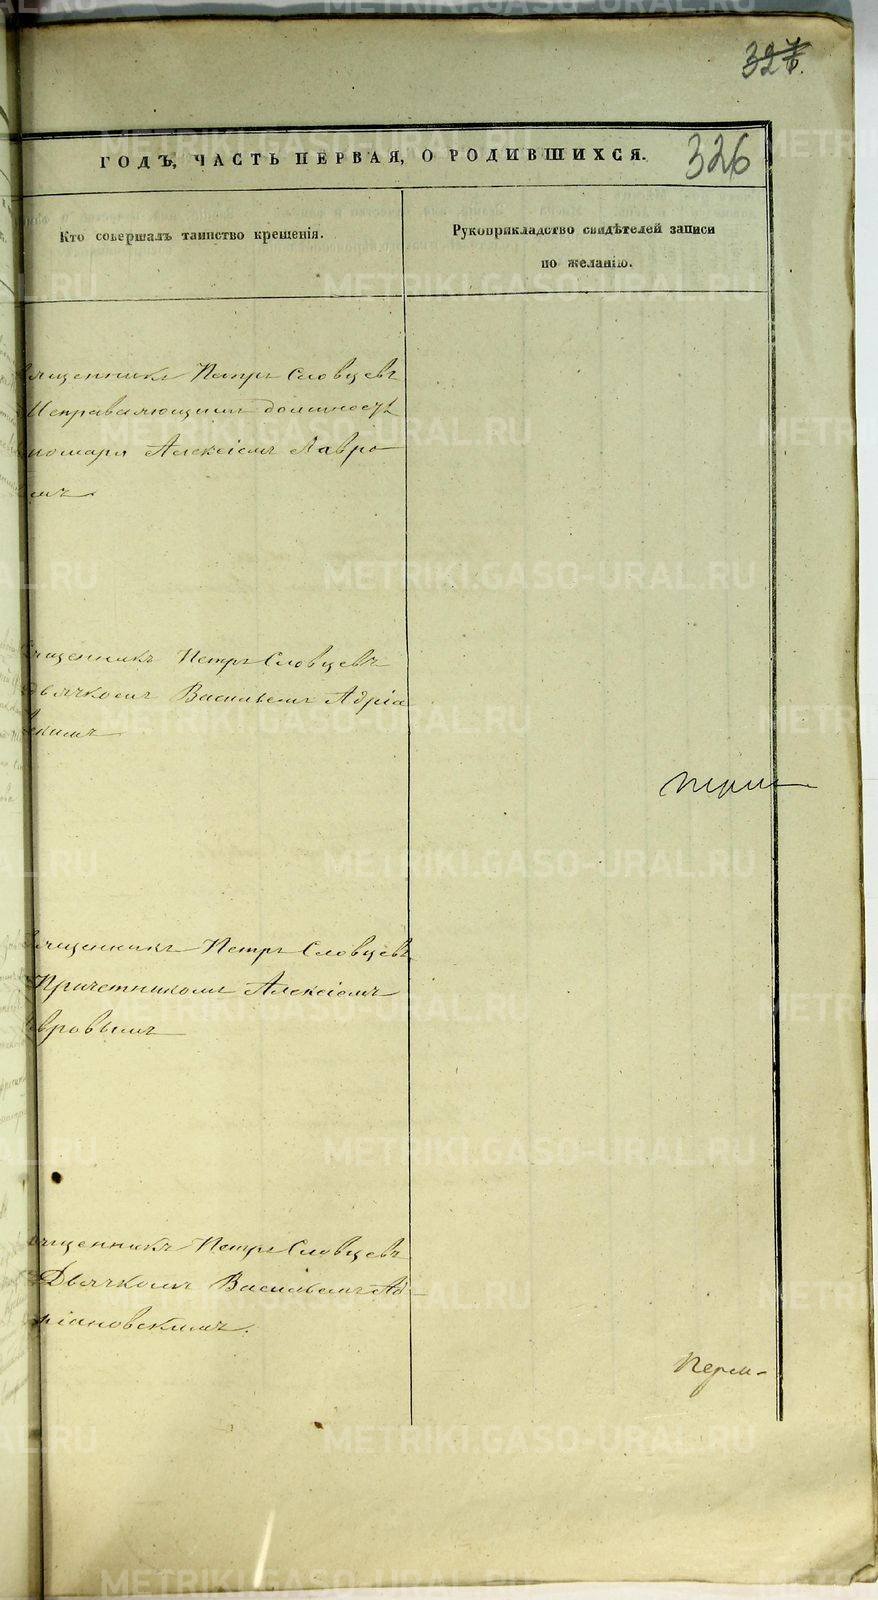 327.
ГОДЪ, ЧАСТЬ ПЕРВАЯ, О РОДИВШИХСЯ.
326
Кто совершалъ таинство крещенія.
Рукоприкладство свидѣтелей записи
по желанію.
ященникъ Петръ Словцевъ
Исправляющимъ должность
номаря Алексіемъ Лавро
мъ.
ященникъ Петръ Словцевъ
Дьячкомъ Васильемъ Адріа
скимъ
ященникъ Петръ Словцевъ
Причетникомъ Алексіемъ
авровымъ
ященникъ Петръ Словцевъ
Дьячкомъ Васильемъ Ад-
ріановскимъ.
Перм-
METRIKI.GASO-URAL.RU